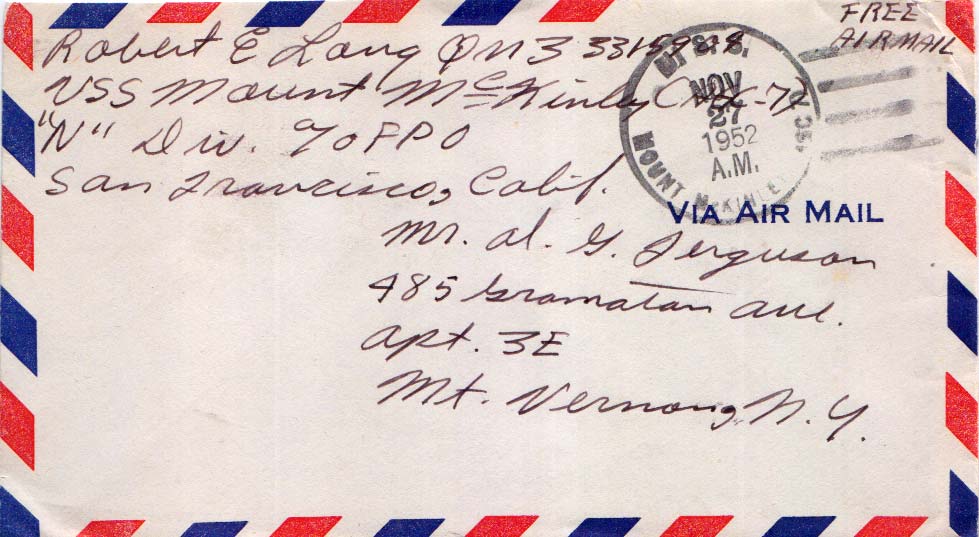 FREE
AIR MAIL
Robert E Long QM3
USS Mount McKinley
"N" Div. c/o FPO
San Francisco, Calif.
NOV
27
1952
A.M.
MOUNT McKINLEY
VIA AIR MAIL
Mr. Al. G. Ferguson
485 Gramatan Ave.
Apt. 3E
Mt. Vernon, N.Y.